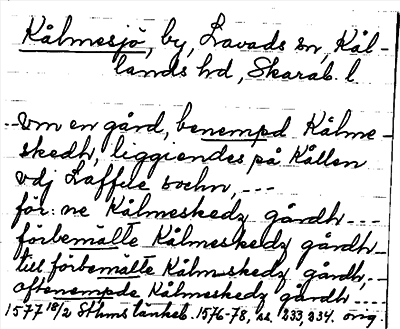 Kålmesjö, by, Lavads sn, Kål-
lands hd, Skarab. l.
Om en gård, benempd Kålme-
skedh, liggiendes på Kållen
vdj Laffde sochn, ---
för: ne Kålmeskedz gårdh ---
förbemälte Kålmeskedz gårdh -
till förbemälte Kålmskedz gårdh, -
ofbenempde Kålmeskedz gårdh ---
1577 18/2 Sthms tänkeb. 1576-78, ss. 233, 234. orig.